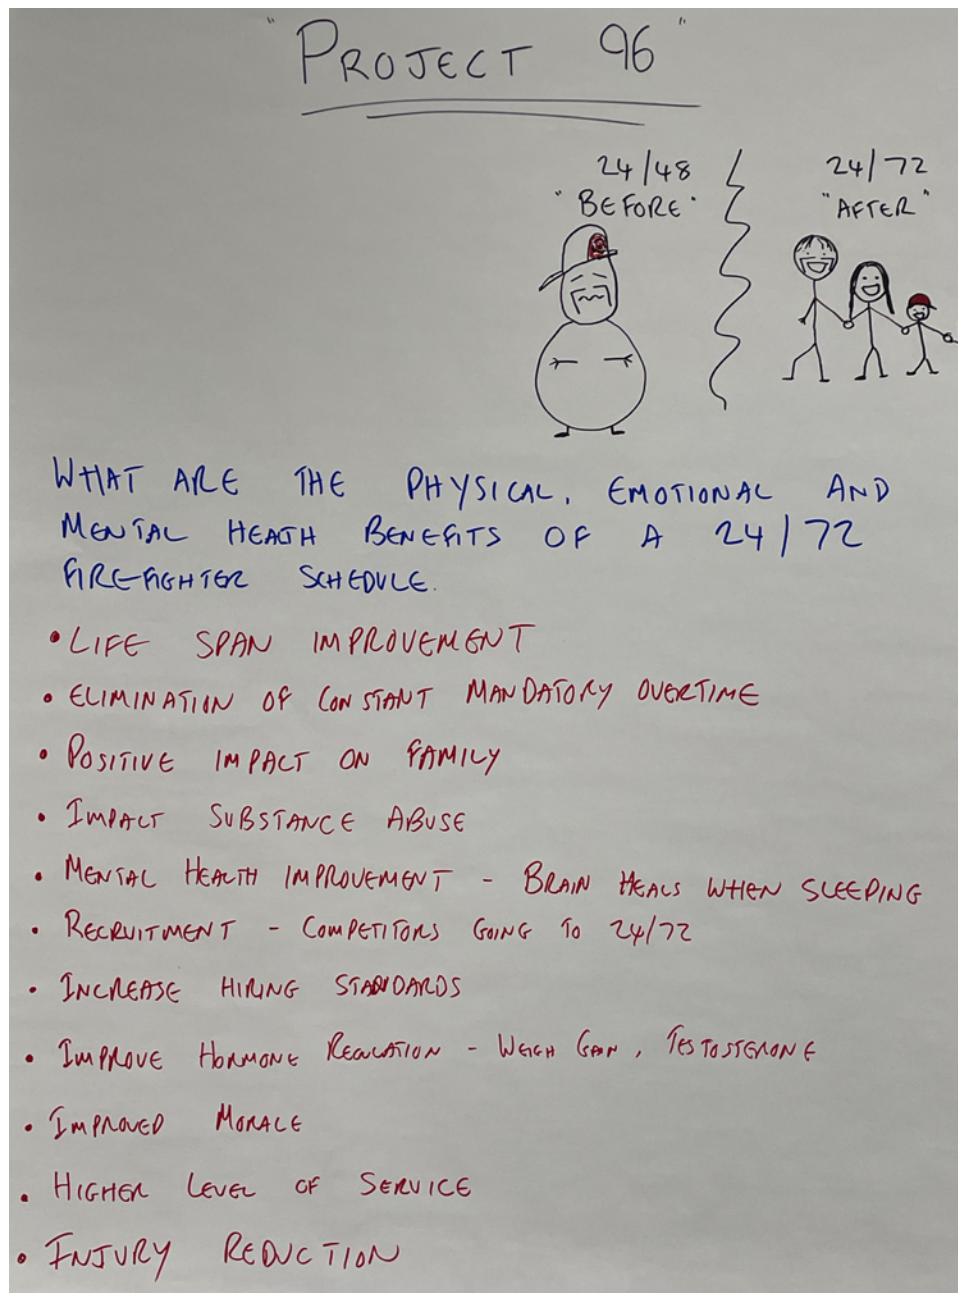 "PROJECT 96"
24/48
"BEFORE"
24/72
"AFTER"
WHAT ARE THE PHYSICAL, EMOTIONAL AND
MENTAL HEATH BENEFITS OF A 24/72
FIREFIGHTER SCHEDULE.
• LIFE SPAN IMPROVEMENT
• ELIMINATION OF CONSTANT MANDATORY OVERTIME
• POSITIVE IMPACT ON FAMILY
• IMPACT SUBSTANCE ABUSE
• MENTAL HEALTH IMPROVEMENT - BRAIN HEALS WHEN SLEEPING
• RECRUITMENT - COMPETITORS GOING TO 24/72
• INCREASE HIRING STANDARDS
• IMPROVE HORMONE REGULATION - WEIGH GAIN, TESTOSTERONE
• IMPROVED MORALE
• HIGHER LEVEL OF SERVICE
• INJURY REDUCTION